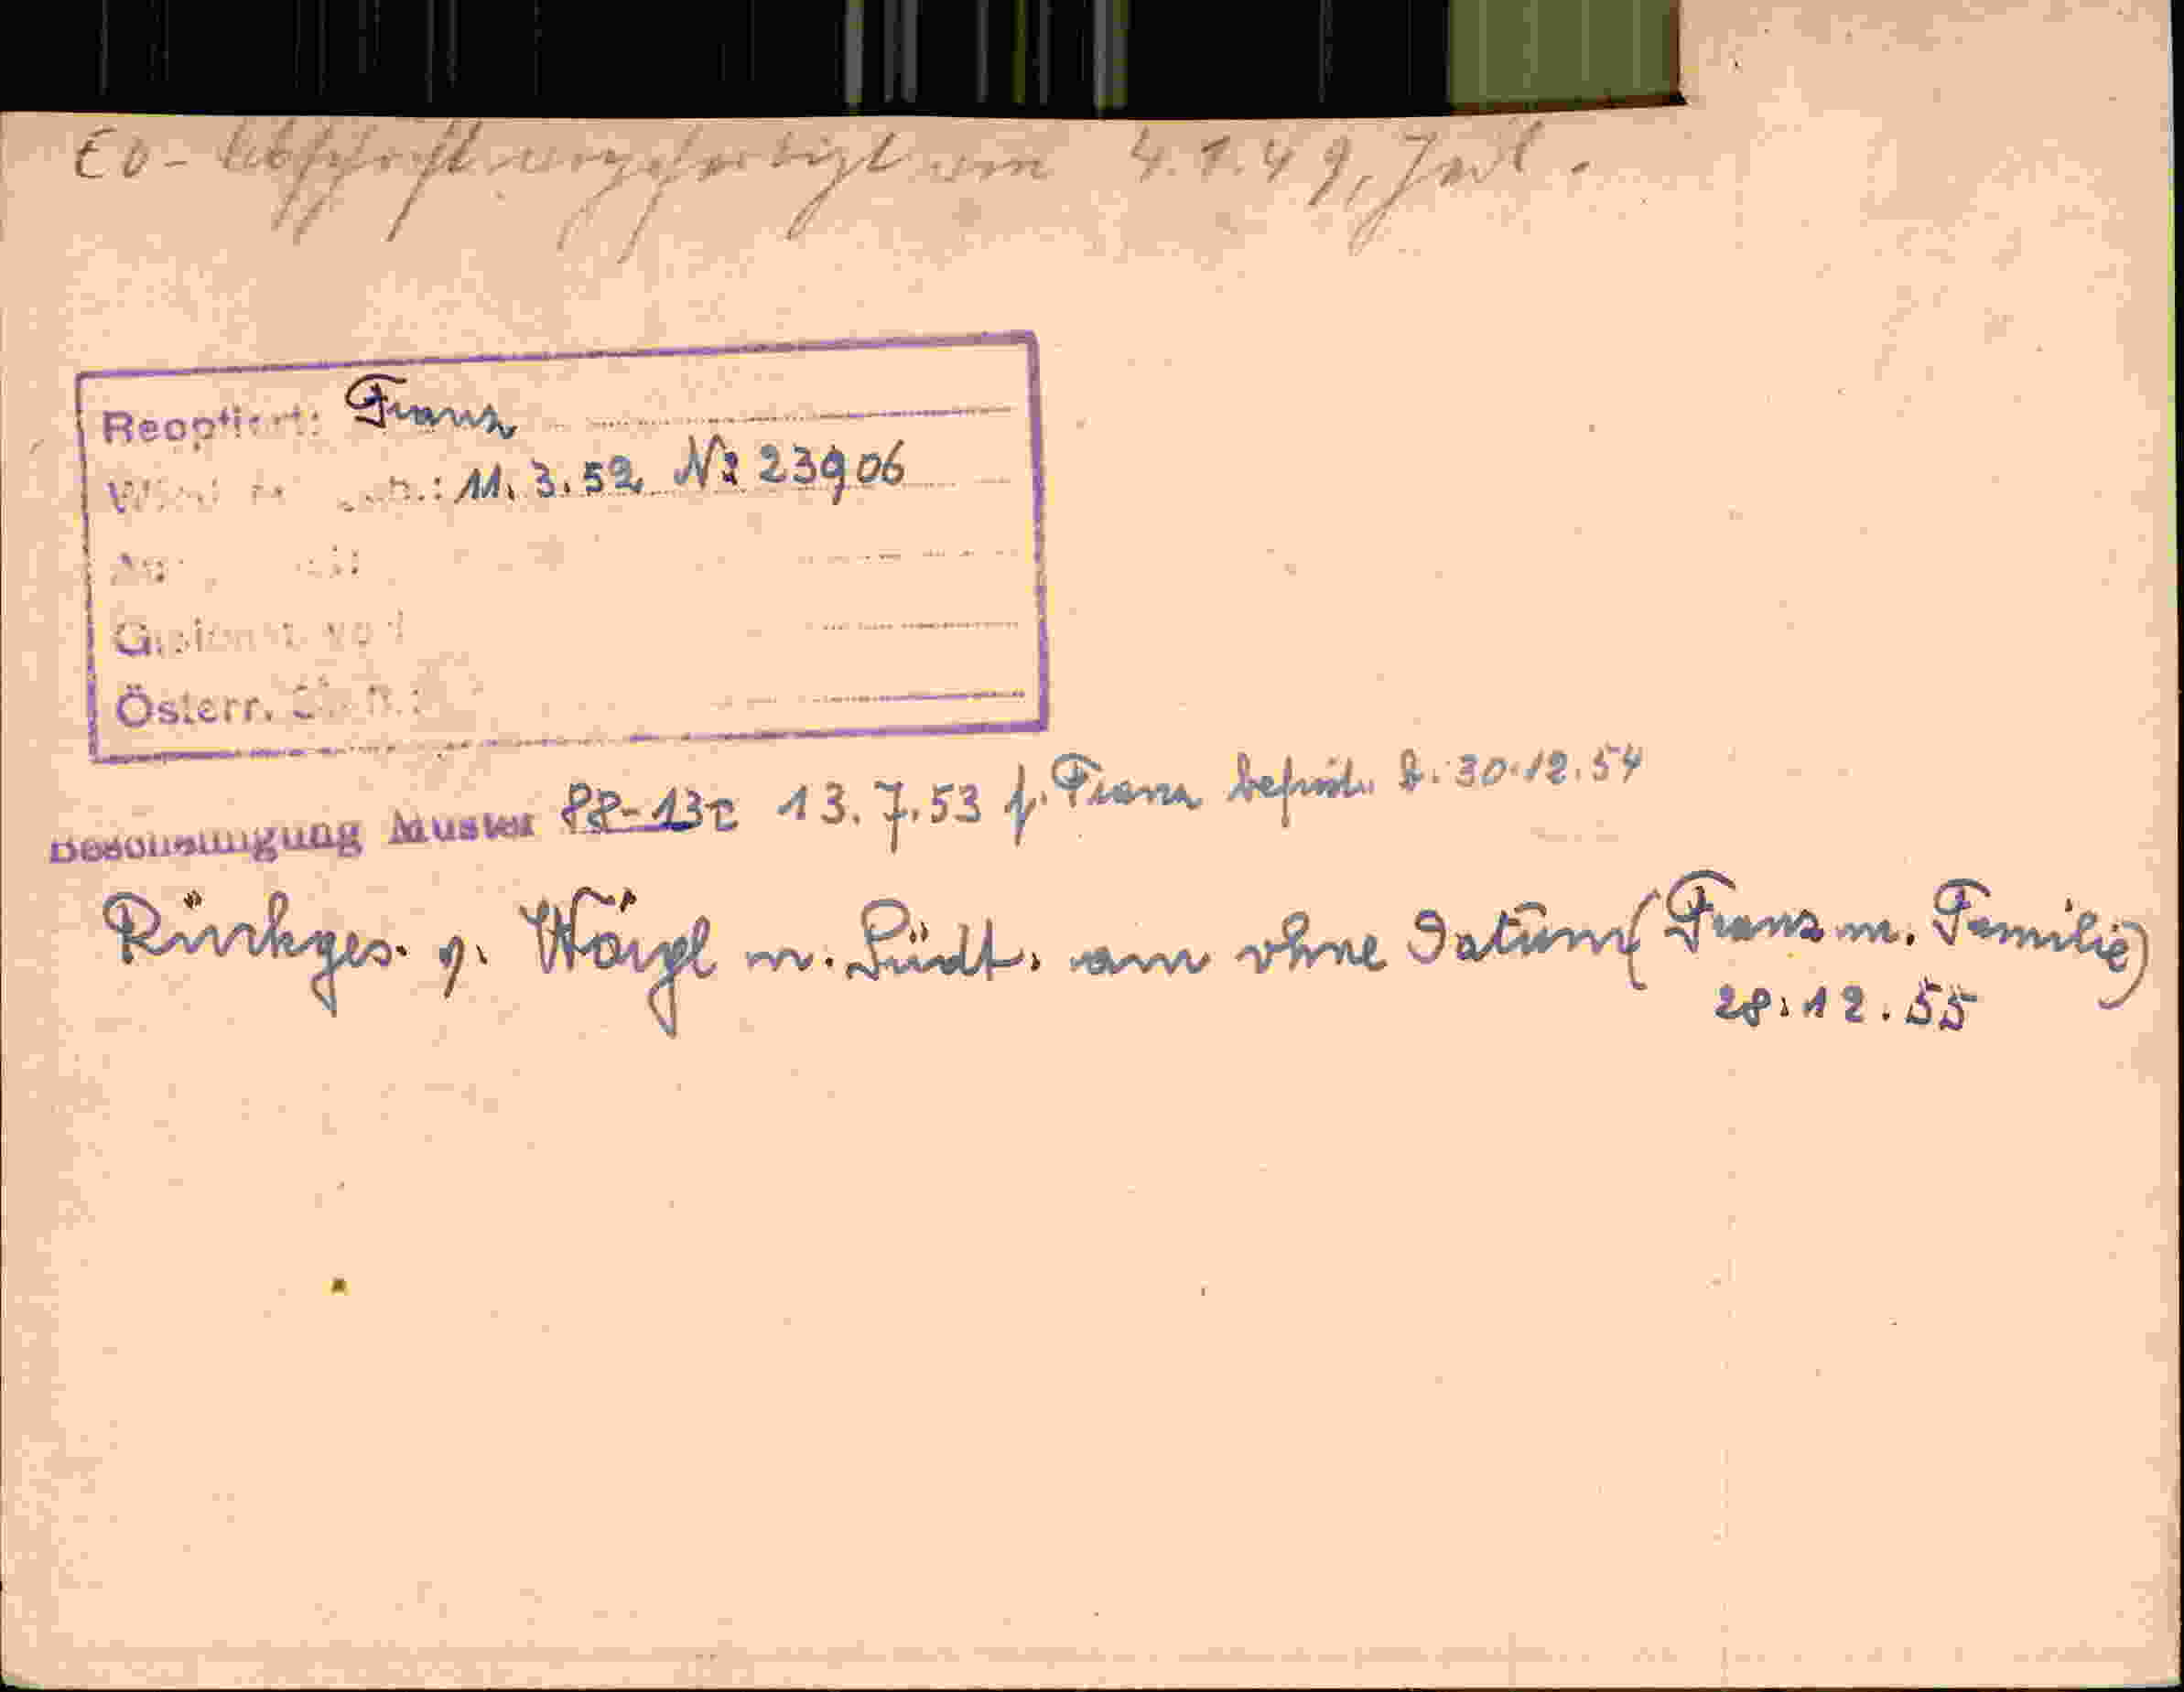 EU- Abschrift angefertigt am 4.1.49, Jad.
Reoptiert: Franz
11. 3. 52 № 23906
Österr.
Bescheinigung Muster 88-13c 13.7.53 f. Franz befrist. b. 30.12.54
Rückges. g. Wörgl n. Südt. am ohne Datum (Franz m. Familie)
28.12.55